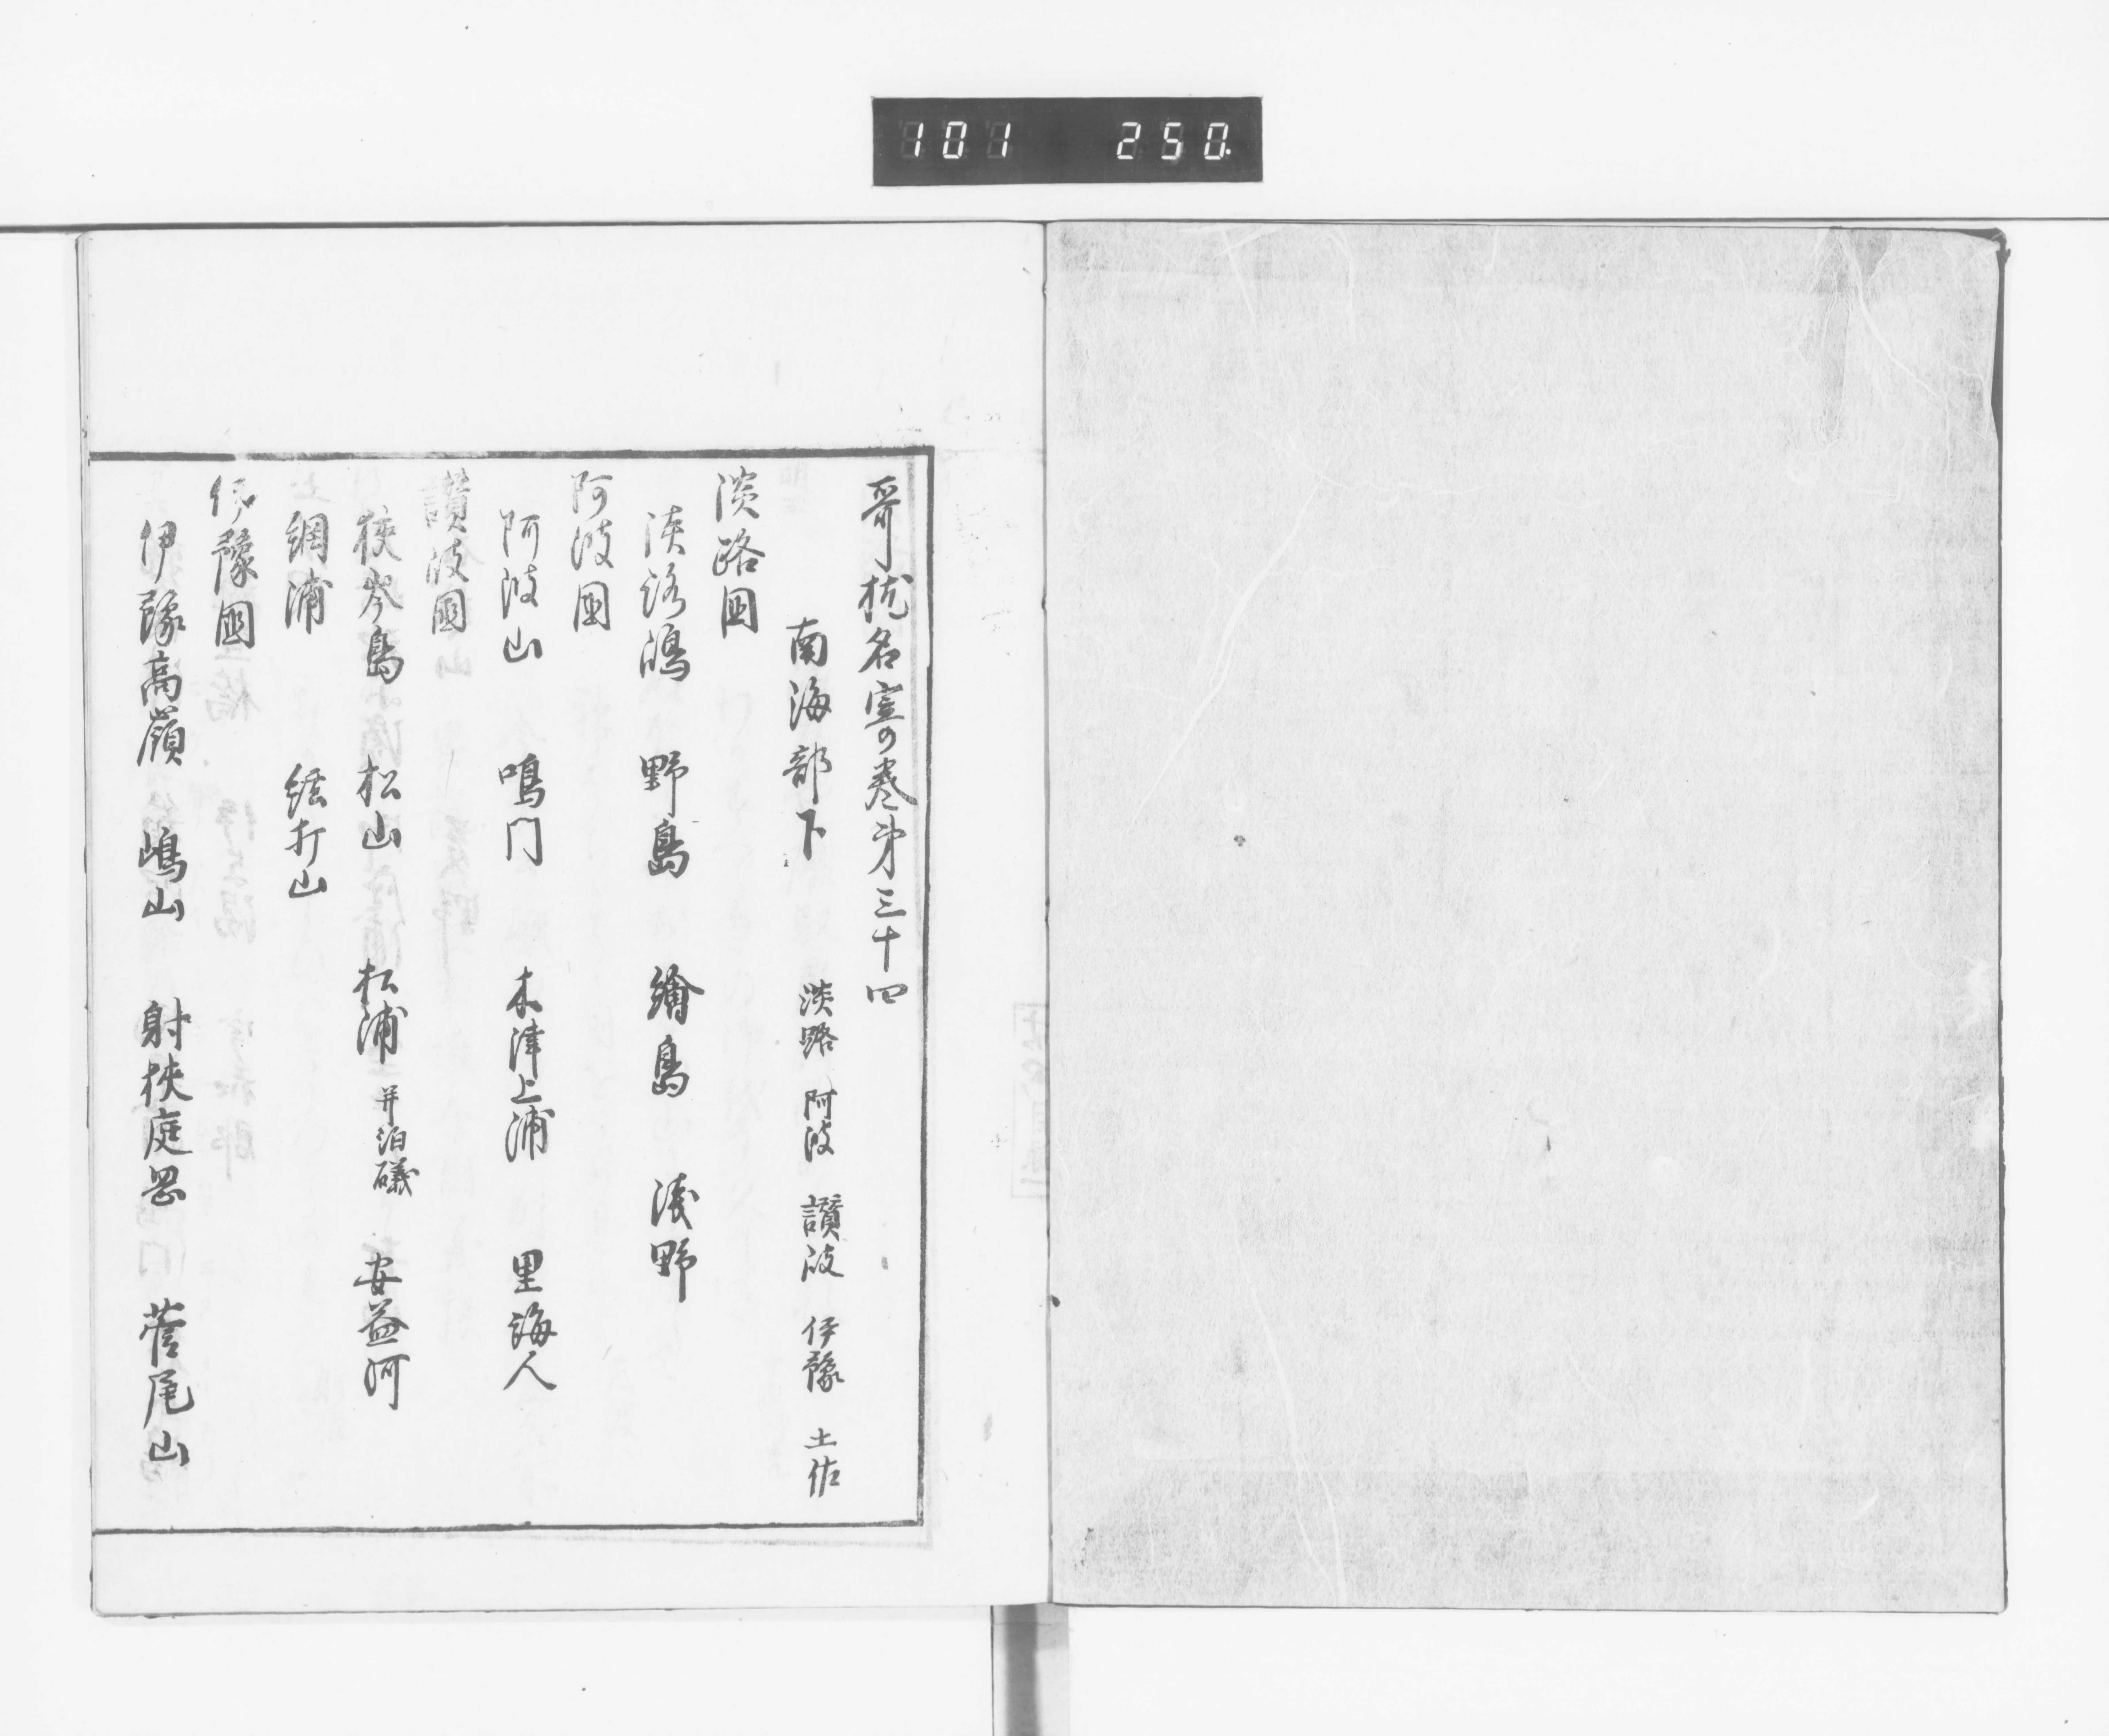 101 250
哥枕名寄巻第三十四
南海部下 淡路 阿波 讃岐 伊豫 土佐
淡路国
淡路嶋 野島 繪島 浅野
阿波國
阿波山 鳴門 木津上浦 里海人
讃岐國
狭岑島 松山 松浦 并泊礒 安益河
綱浦 綾打山
伊豫國
伊豫高嶺 嶋山 射狭庭岡 菅尾山